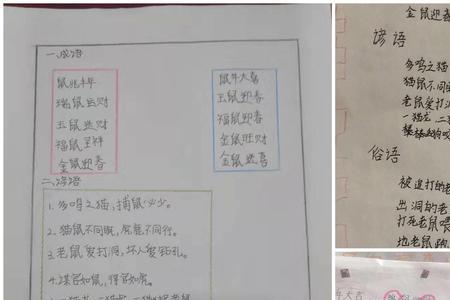 一、成语
鼠兆丰年
瑞鼠运财
玉鼠进财
福鼠呈祥
金鼠迎春
鼠年大喜
玉鼠迎春
福鼠迎春
金鼠旺财
金鼠送喜
二、谚语
1.多鸣之猫，捕鼠必少。
2.猫鼠不同眠，虎鹿不同行。
3.老鼠爱打洞，坏人爱钻孔。
4.谋官如鼠，得官如虎。
金鼠迎春
谚语
多鸣之猫
猫鼠不同
老鼠爱打洞
一猫龙，二
俗语
被追打的老
出洞的老
打死老鼠喂
地老鼠跑
年大吉